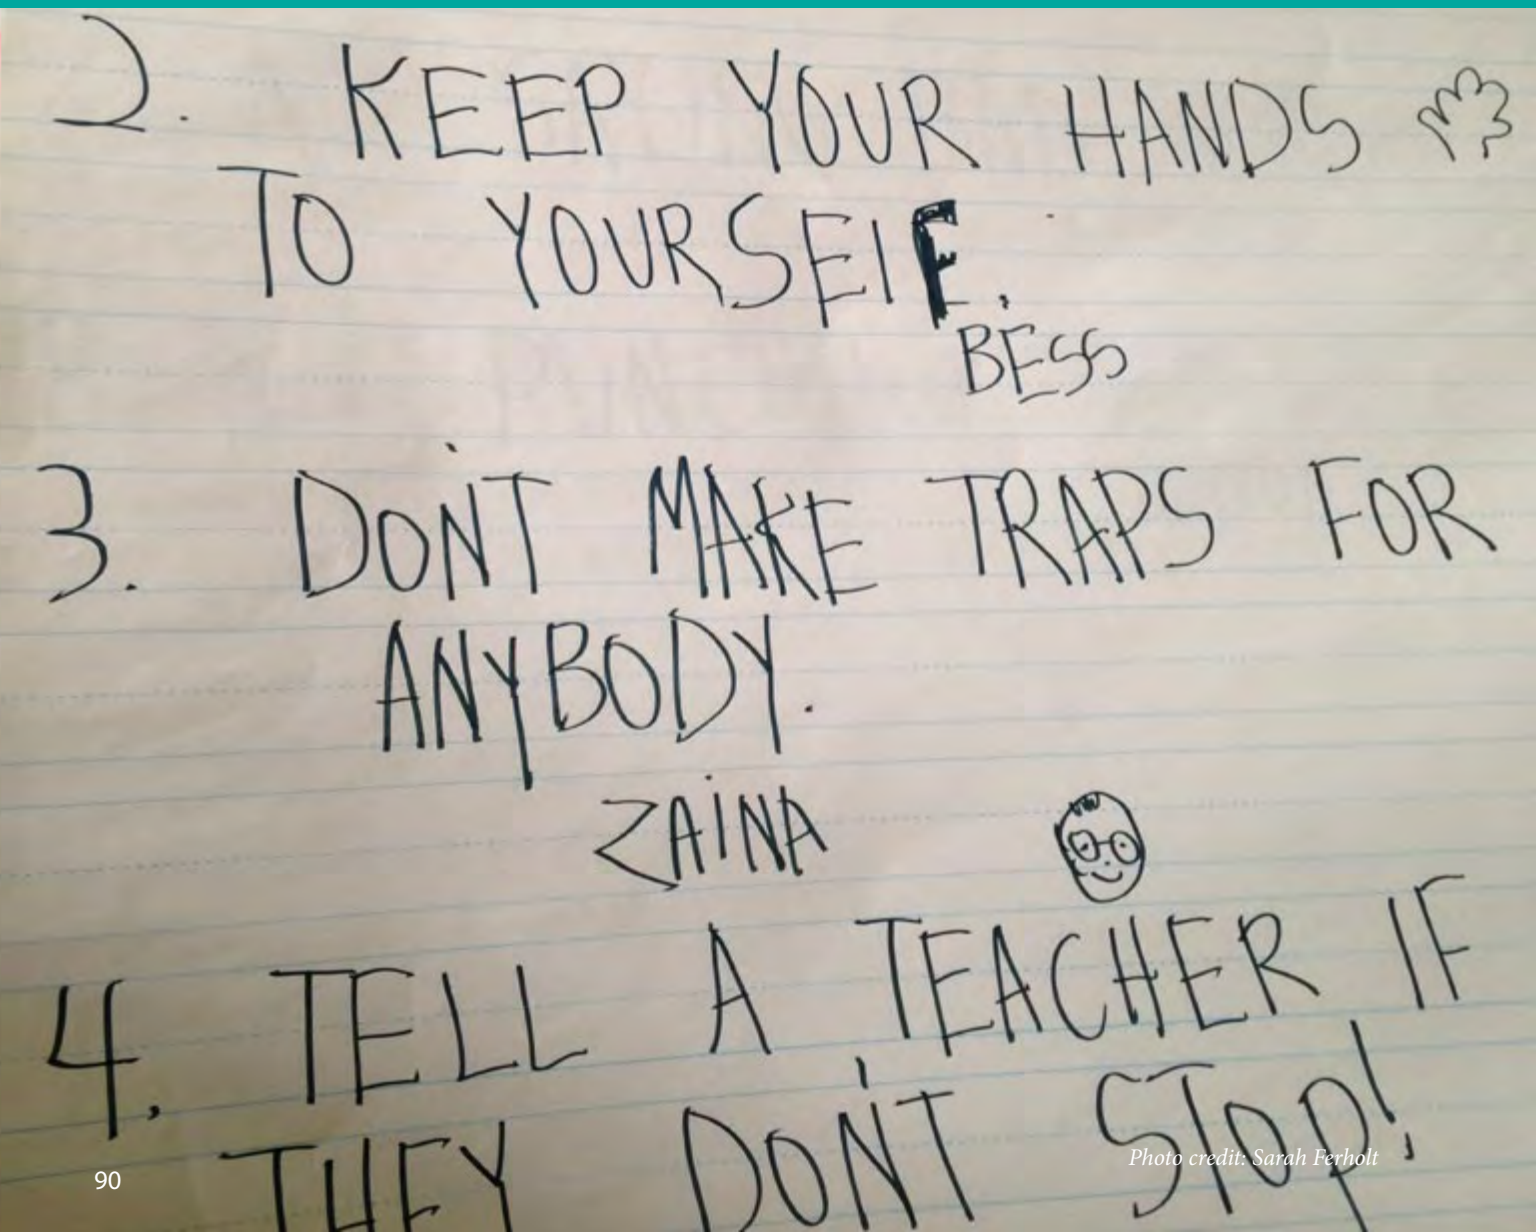 2. KEEP YOUR HANDS
TO YOURSElF.
BESS
3. DON'T MAKE TRAPS FOR
ANYBODY.
ZAiNA
4. TELL A TEACHER IF
THEY DON'T STOP!
Photo credit: Sarah Ferholt
90